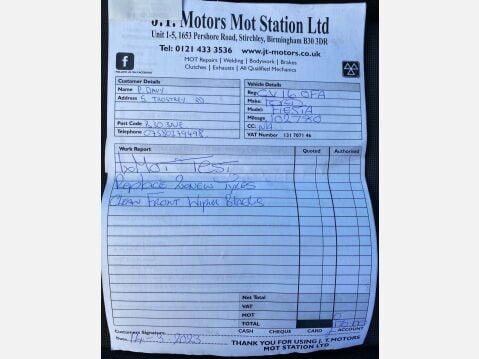 J.T. Motors Mot Station Ltd
Unit 1-5, 1653 Pershore Road, Stirchley, Birmingham B30 3DR
Tel: 0121 433 3536 www.jt-motors.co.uk
MOT Repairs | Welding | Bodywork | Brakes
Clutches | Exhausts | All Qualified Mechanics
FOLLOW US ON FACEBOOK
Customer Details
Name P. DAVY
Address 5
Post Code B30
Telephone
Vehicle Details
Reg: CV16 OFA
Make: FORD
Model: FIESTA
Mileage: 102780
CC: N/A
VAT Number 131 7071 46
Work Report Quoted Authorised
MOT TEST
Replace 2 new Tyres
Clean Front Wiper Blades
Net Total
VAT
MOT
TOTAL
CASH CHEQUE CARD ACCOUNT
Customers Signature
Date 14-3-2023
THANK YOU FOR USING J.T. MOTORS
MOT STATION LTD